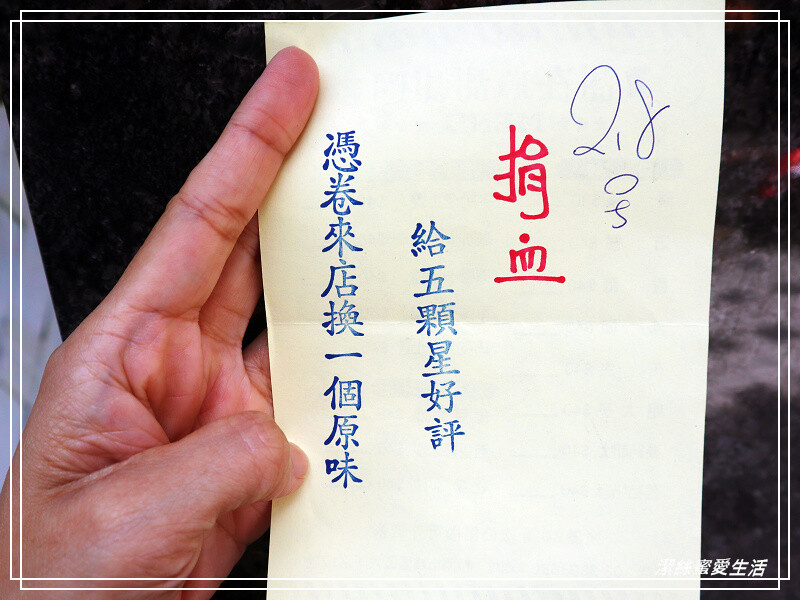 28
号
捐血
給五顆星好評
憑卷來店換一個原味
潔絲蜜愛生活